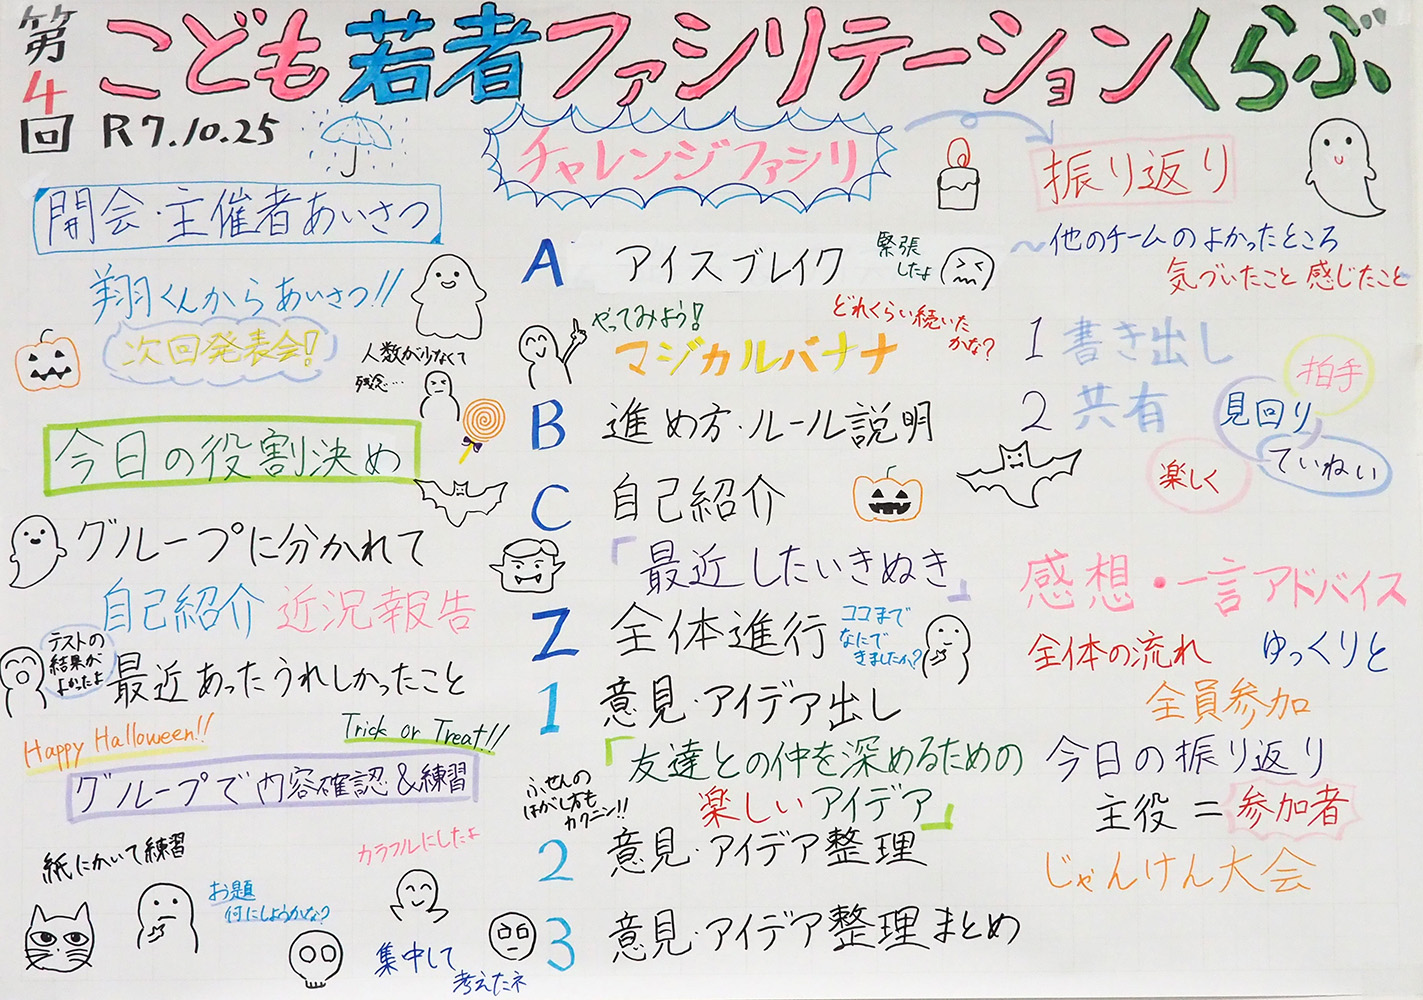 第4回
こども若者ファシリテーションくらぶ
R7.10.25
開会・主催者あいさつ
翔くんからあいさつ!!
次回発表会!
人数が少なくて
残念…
今日の役割決め
グループに分かれて
自己紹介 近況報告
テストの
結果が
よかったよ
最近あったうれしかったこと
Happy Halloween!!
Trick or Treat!!
グループで内容確認&練習
紙にかいて練習
お題
何にしようかな?
カラフルにしたよ
集中して
考えたネ
チャレンジファシリ
A アイスブレイク
緊張
したよ
やってみよう!
マジカルバナナ
どれくらい続いた
かな?
B 進め方・ルール説明
C 自己紹介
「最近したいきぬき」
Z 全体進行
ココまで
なにで
きましたか?
1 意見・アイデア出し
「友達との仲を深めるための
楽しいアイデア」
ふせんの
はがし方も
カクニン!!
2 意見・アイデア整理
3 意見・アイデア整理まとめ
振り返り
〜他のチームのよかったところ
気づいたこと 感じたこと
1 書き出し
2 共有
拍手
見回り
ていねい
楽しく
感想・一言アドバイス
全体の流れ ゆっくりと
全員参加
今日の振り返り
主役=参加者
じゃんけん大会